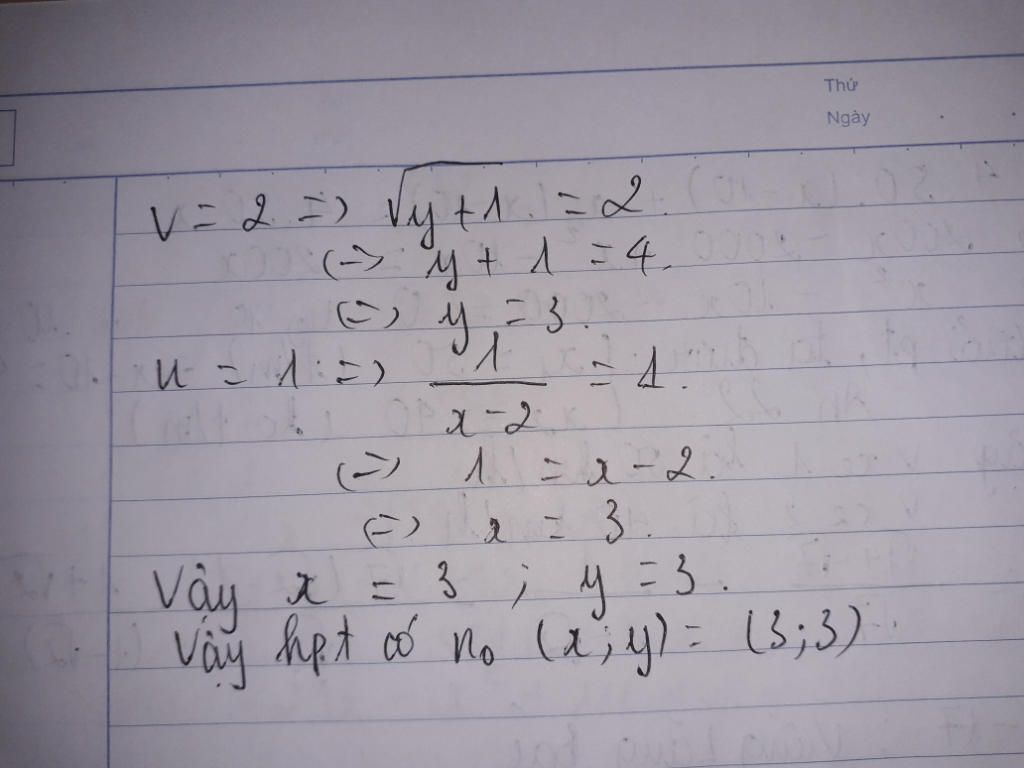 Thứ
Ngày
V = 2 => √y+1 = 2.
(=) y + 1 = 4.
(=) y = 3.
u = 1 => 1/x-2 = 1.
(=) 1 = x - 2.
(=) x = 3.
Vậy x = 3 ; y = 3.
Vậy hpt có n₀ (x;y) = (3;3)